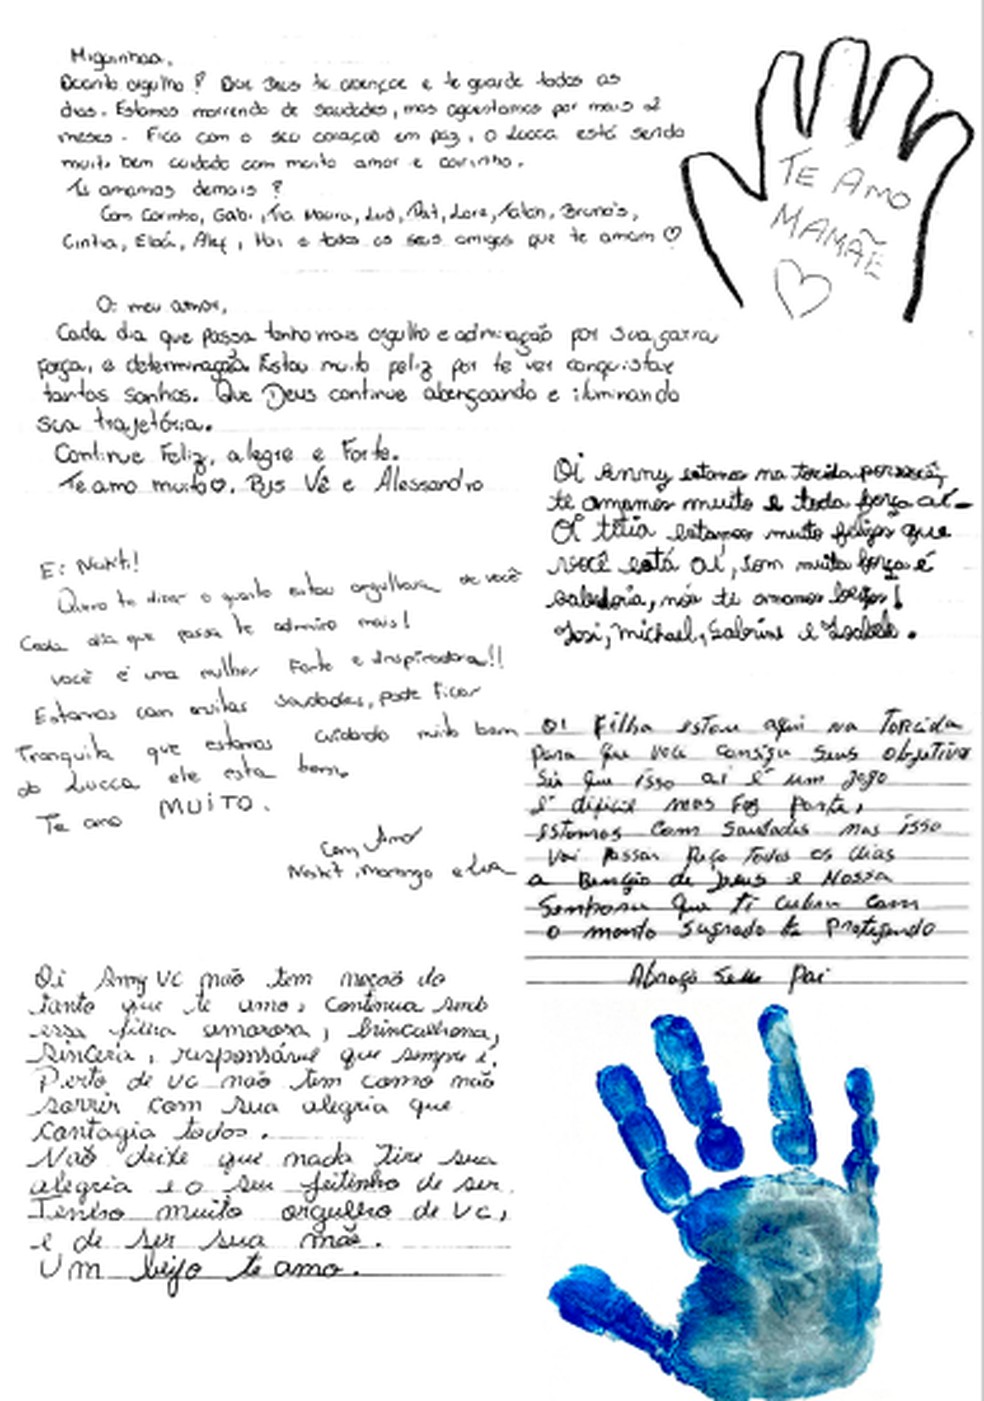 Miguinhaa,
Quanto orgulho! Que Deus te abençoe e te guarde todos os
dias. Estamos morrendo de saudades, mas aguentamos por mais 2
meses. Fica com o seu coração em paz, o Lucca está sendo
muito bem cuidado com muito amor e carinho.
Te amamos demais!
Com Carinho, Gabi, Tia Maura, Luô, Pat, Lore, Talon, Bruno's,
Cintia, Eloá, Alef, e todos os seus amigos que te amam ♡
TE AMO
MAMÃE
♡
Oi meu amor,
Cada dia que passa tenho mais orgulho e admiração por sua garra
força, e determinação. Estou muito feliz por te ver conquistar
tantos sonhos. Que Deus continue abençoando e iluminando
sua trajetória.
Continue Feliz, alegre e Forte.
Te amo muito♡. Bjs Vê e Alessandro
Oi Anny estamos na torcida por você,
te amamos muito e toda força aí.
Oi titia estamos muito felizes que
você está aí, com muita força é
sabedoria, nós ti amamos beijos!
Josi, Michael, Sabrine e Izabele.
Ei Nakit!
Quero te dizer o quanto estou orgulhosa de você
Cada dia que passa te admiro mais!
você é uma mulher Forte e Inspiradora!!
Estamos com muitas saudades, pode ficar
Tranquila que estamos cuidando muito bem
do Lucca ele esta bem.
Te amo MUITO.
Com Amor
Nakit, Morango e Lua
Oi Filha estou aqui na Torcida
para que você consiga seus objetivo
Sei que isso aí é um jogo
é dificil mas Faz parte,
estamos com Saudades mas isso
Vai passar Peço Todos os dias
a Benção de Deus e Nossa
Senhora que Ti cubra com
o manto Sagrado te Protegendo
Abraço Seu Pai
Oi Anny vc não tem noção do
tanto que te amo, continua sendo
essa filha amorosa, brincalhona,
sincera, responsável que sempre é.
Perto de vc não tem como não
sorrir com sua alegria que
contagia todos.
Não deixe que nada tire sua
alegria e o seu jeitinho de ser.
Tenho muito orgulho de vc,
e de ser sua mãe.
Um beijo te amo.